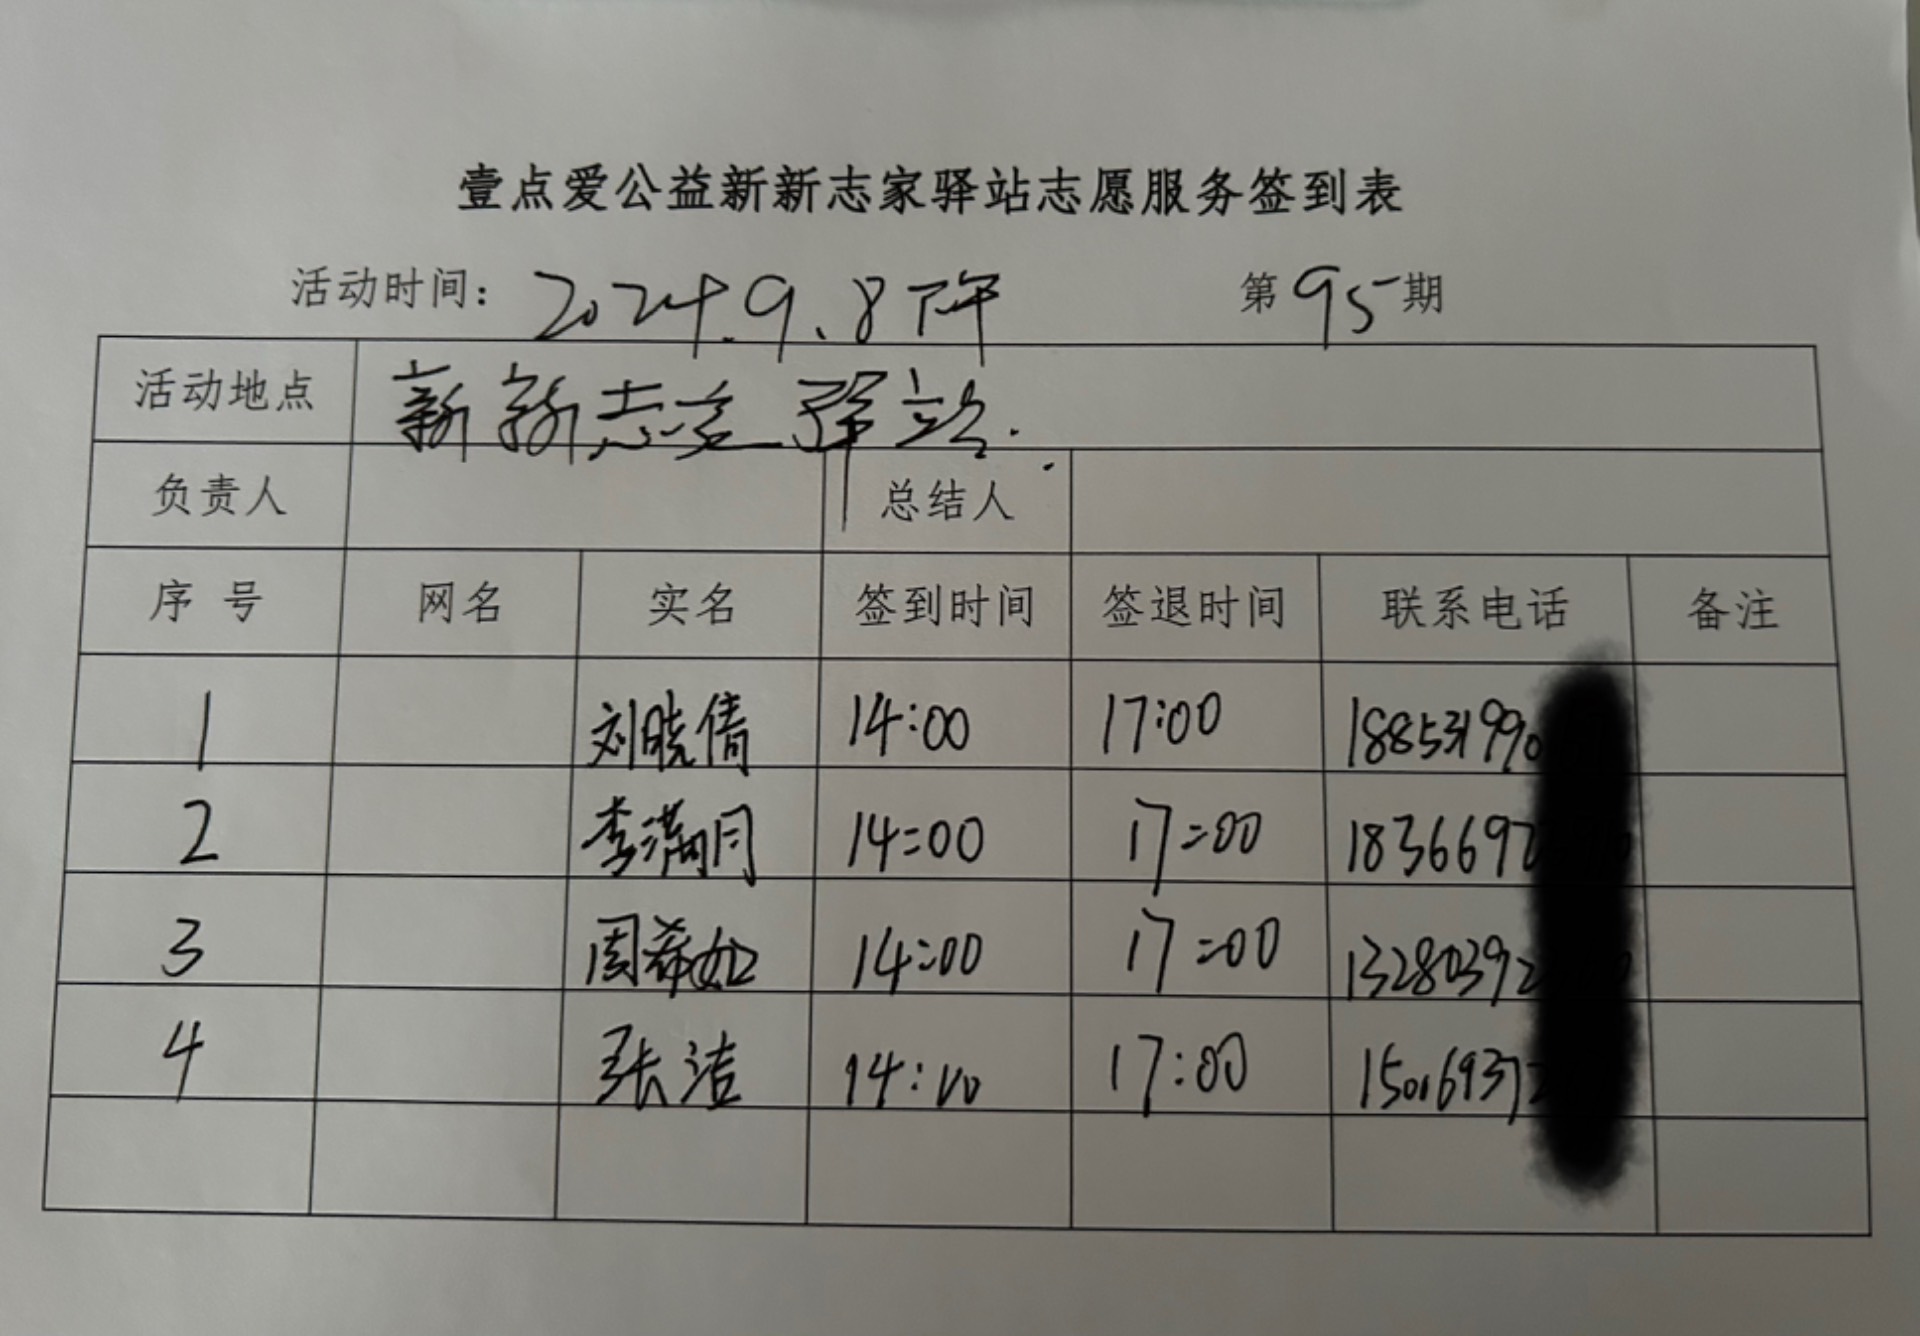 壹点爱公益新新志家驿站志愿服务签到表
活动时间： 2024.9.8下午 第95期
活动地点 新新志家驿站.
负责人 总结人
序号 网名 实名 签到时间 签退时间 联系电话 备注
1 刘晓倩 14:00 17:00 188531990
2 李满月 14:00 17:00 1836697
3 周希如 14:00 17:00 13280392
4 张洁 14:00 17:00 15016937